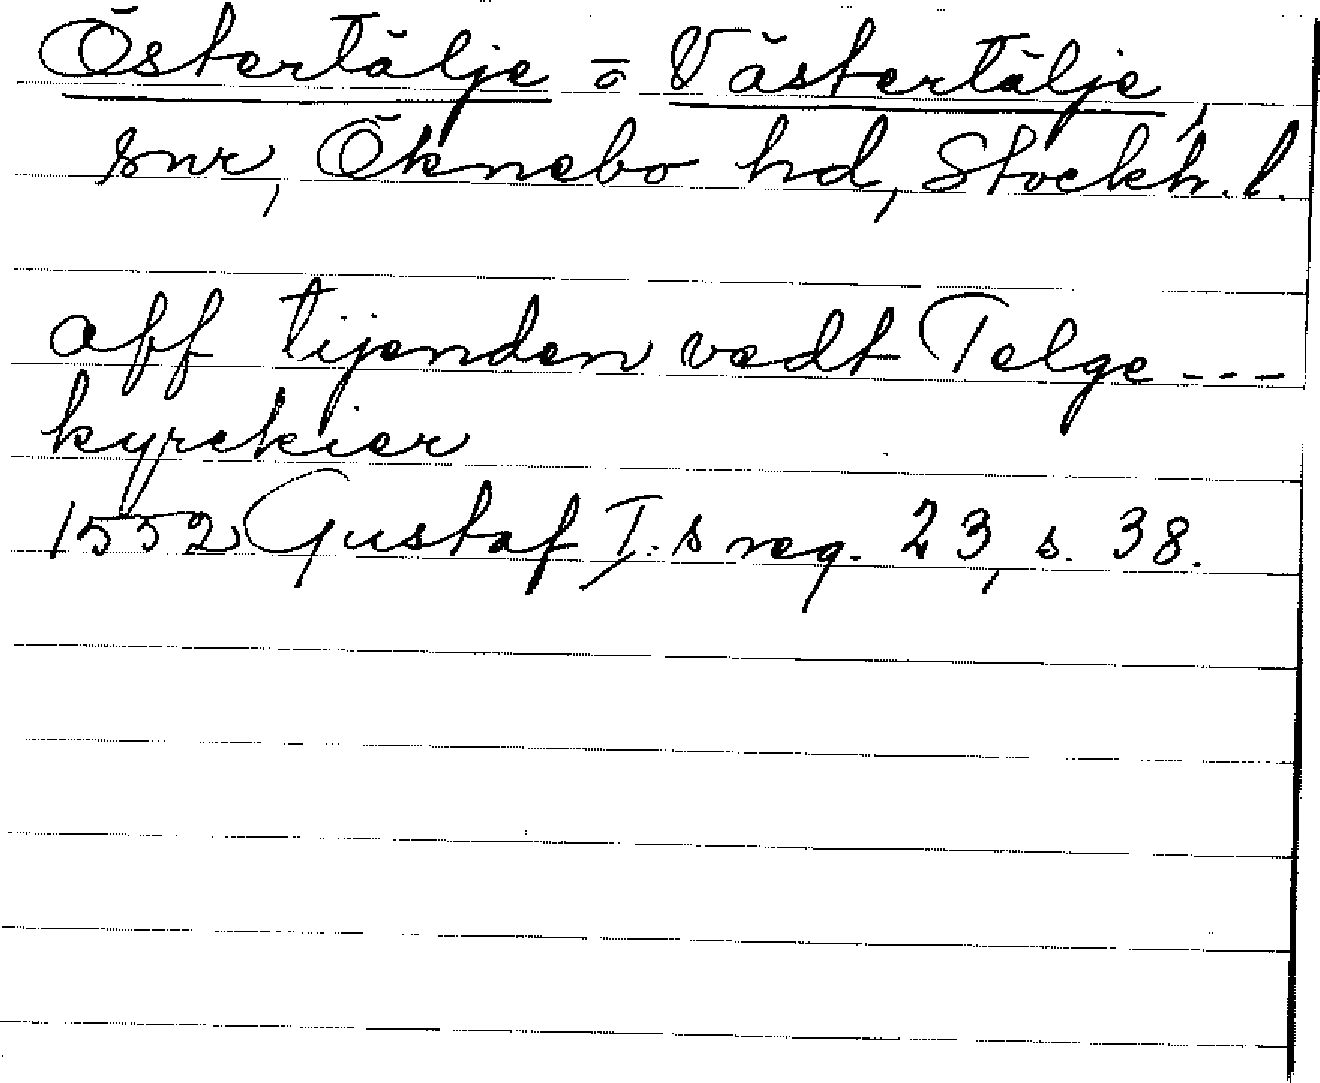 Östertälje o Västertälje,
snr, Öknebo hd, Stockh. l.
aff tijenden vedt Telge ---
kyrckier
1552 Gustaf I:s reg. 23, s. 38.